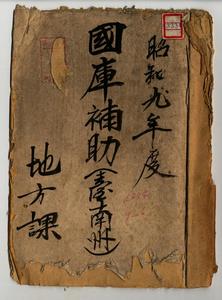 昭和九年度
國庫補助(臺南州)
地方課